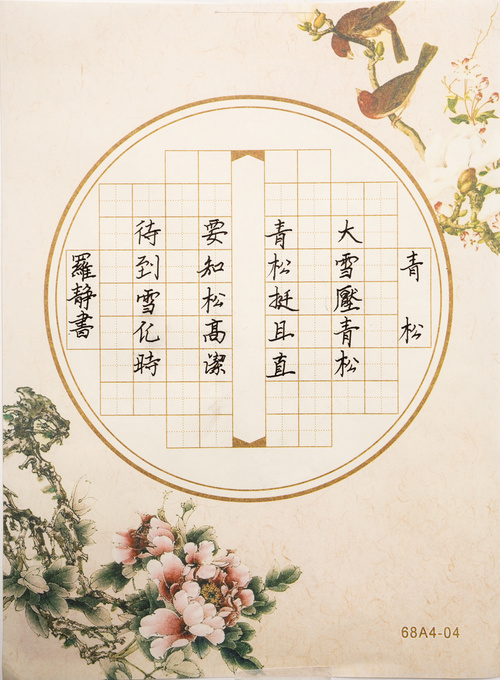 青松
大雪壓青松
青松挺且直
要知松高潔
待到雪化時
羅靜書
68A4-04